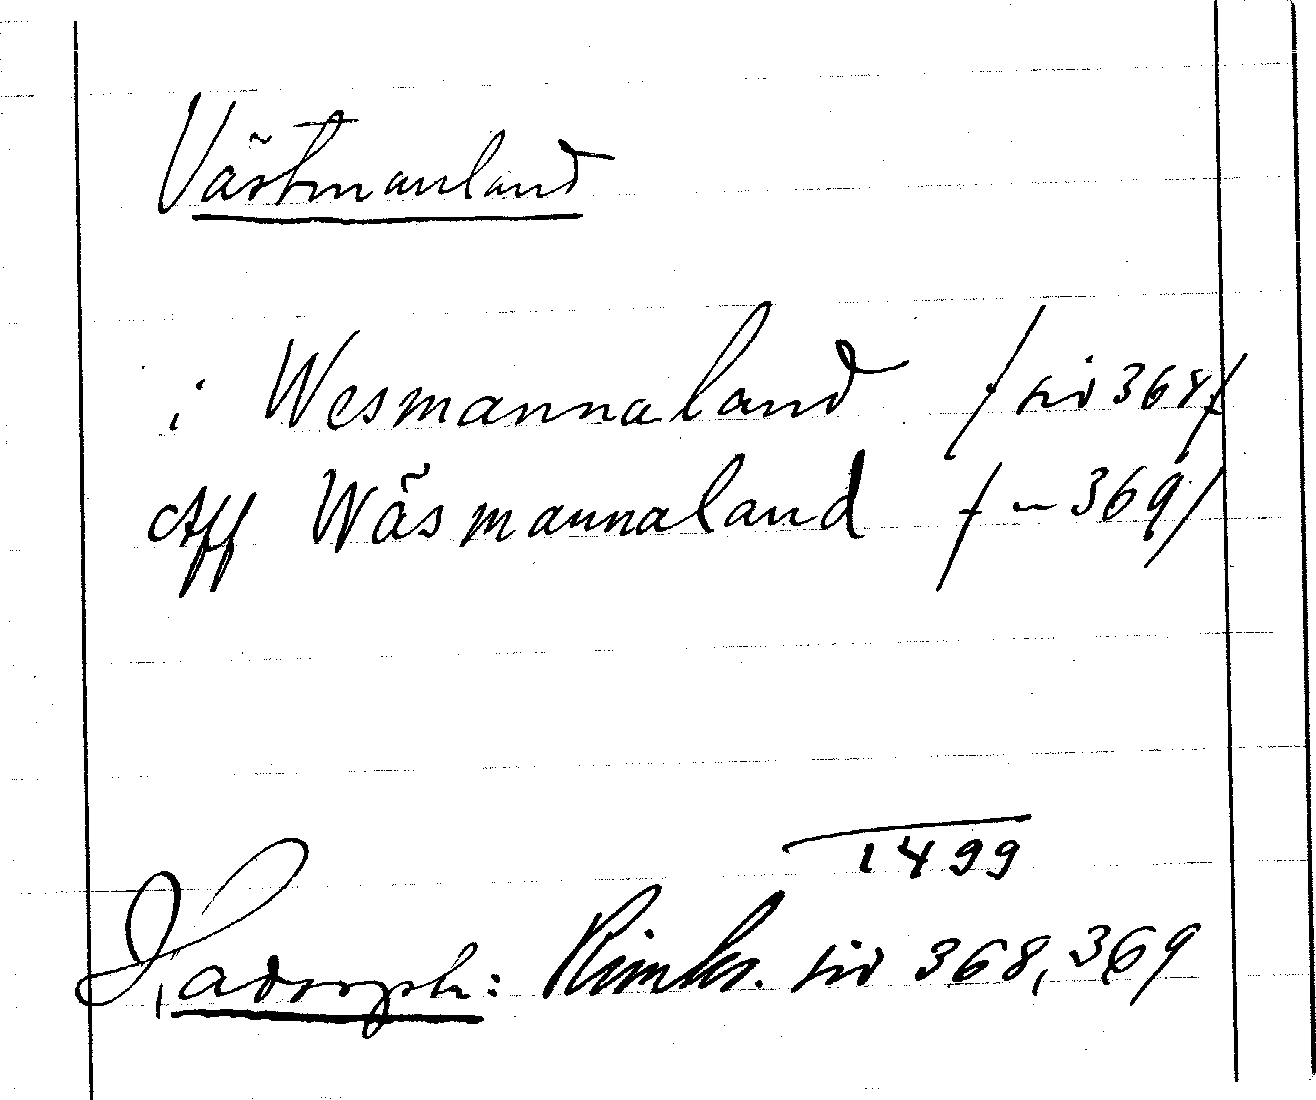 Västmanland
i Wesmannaland / sid 368/
Aff Wäsmannaland / - 369/
1499
Hadorph: Rimkr. sid 368, 369